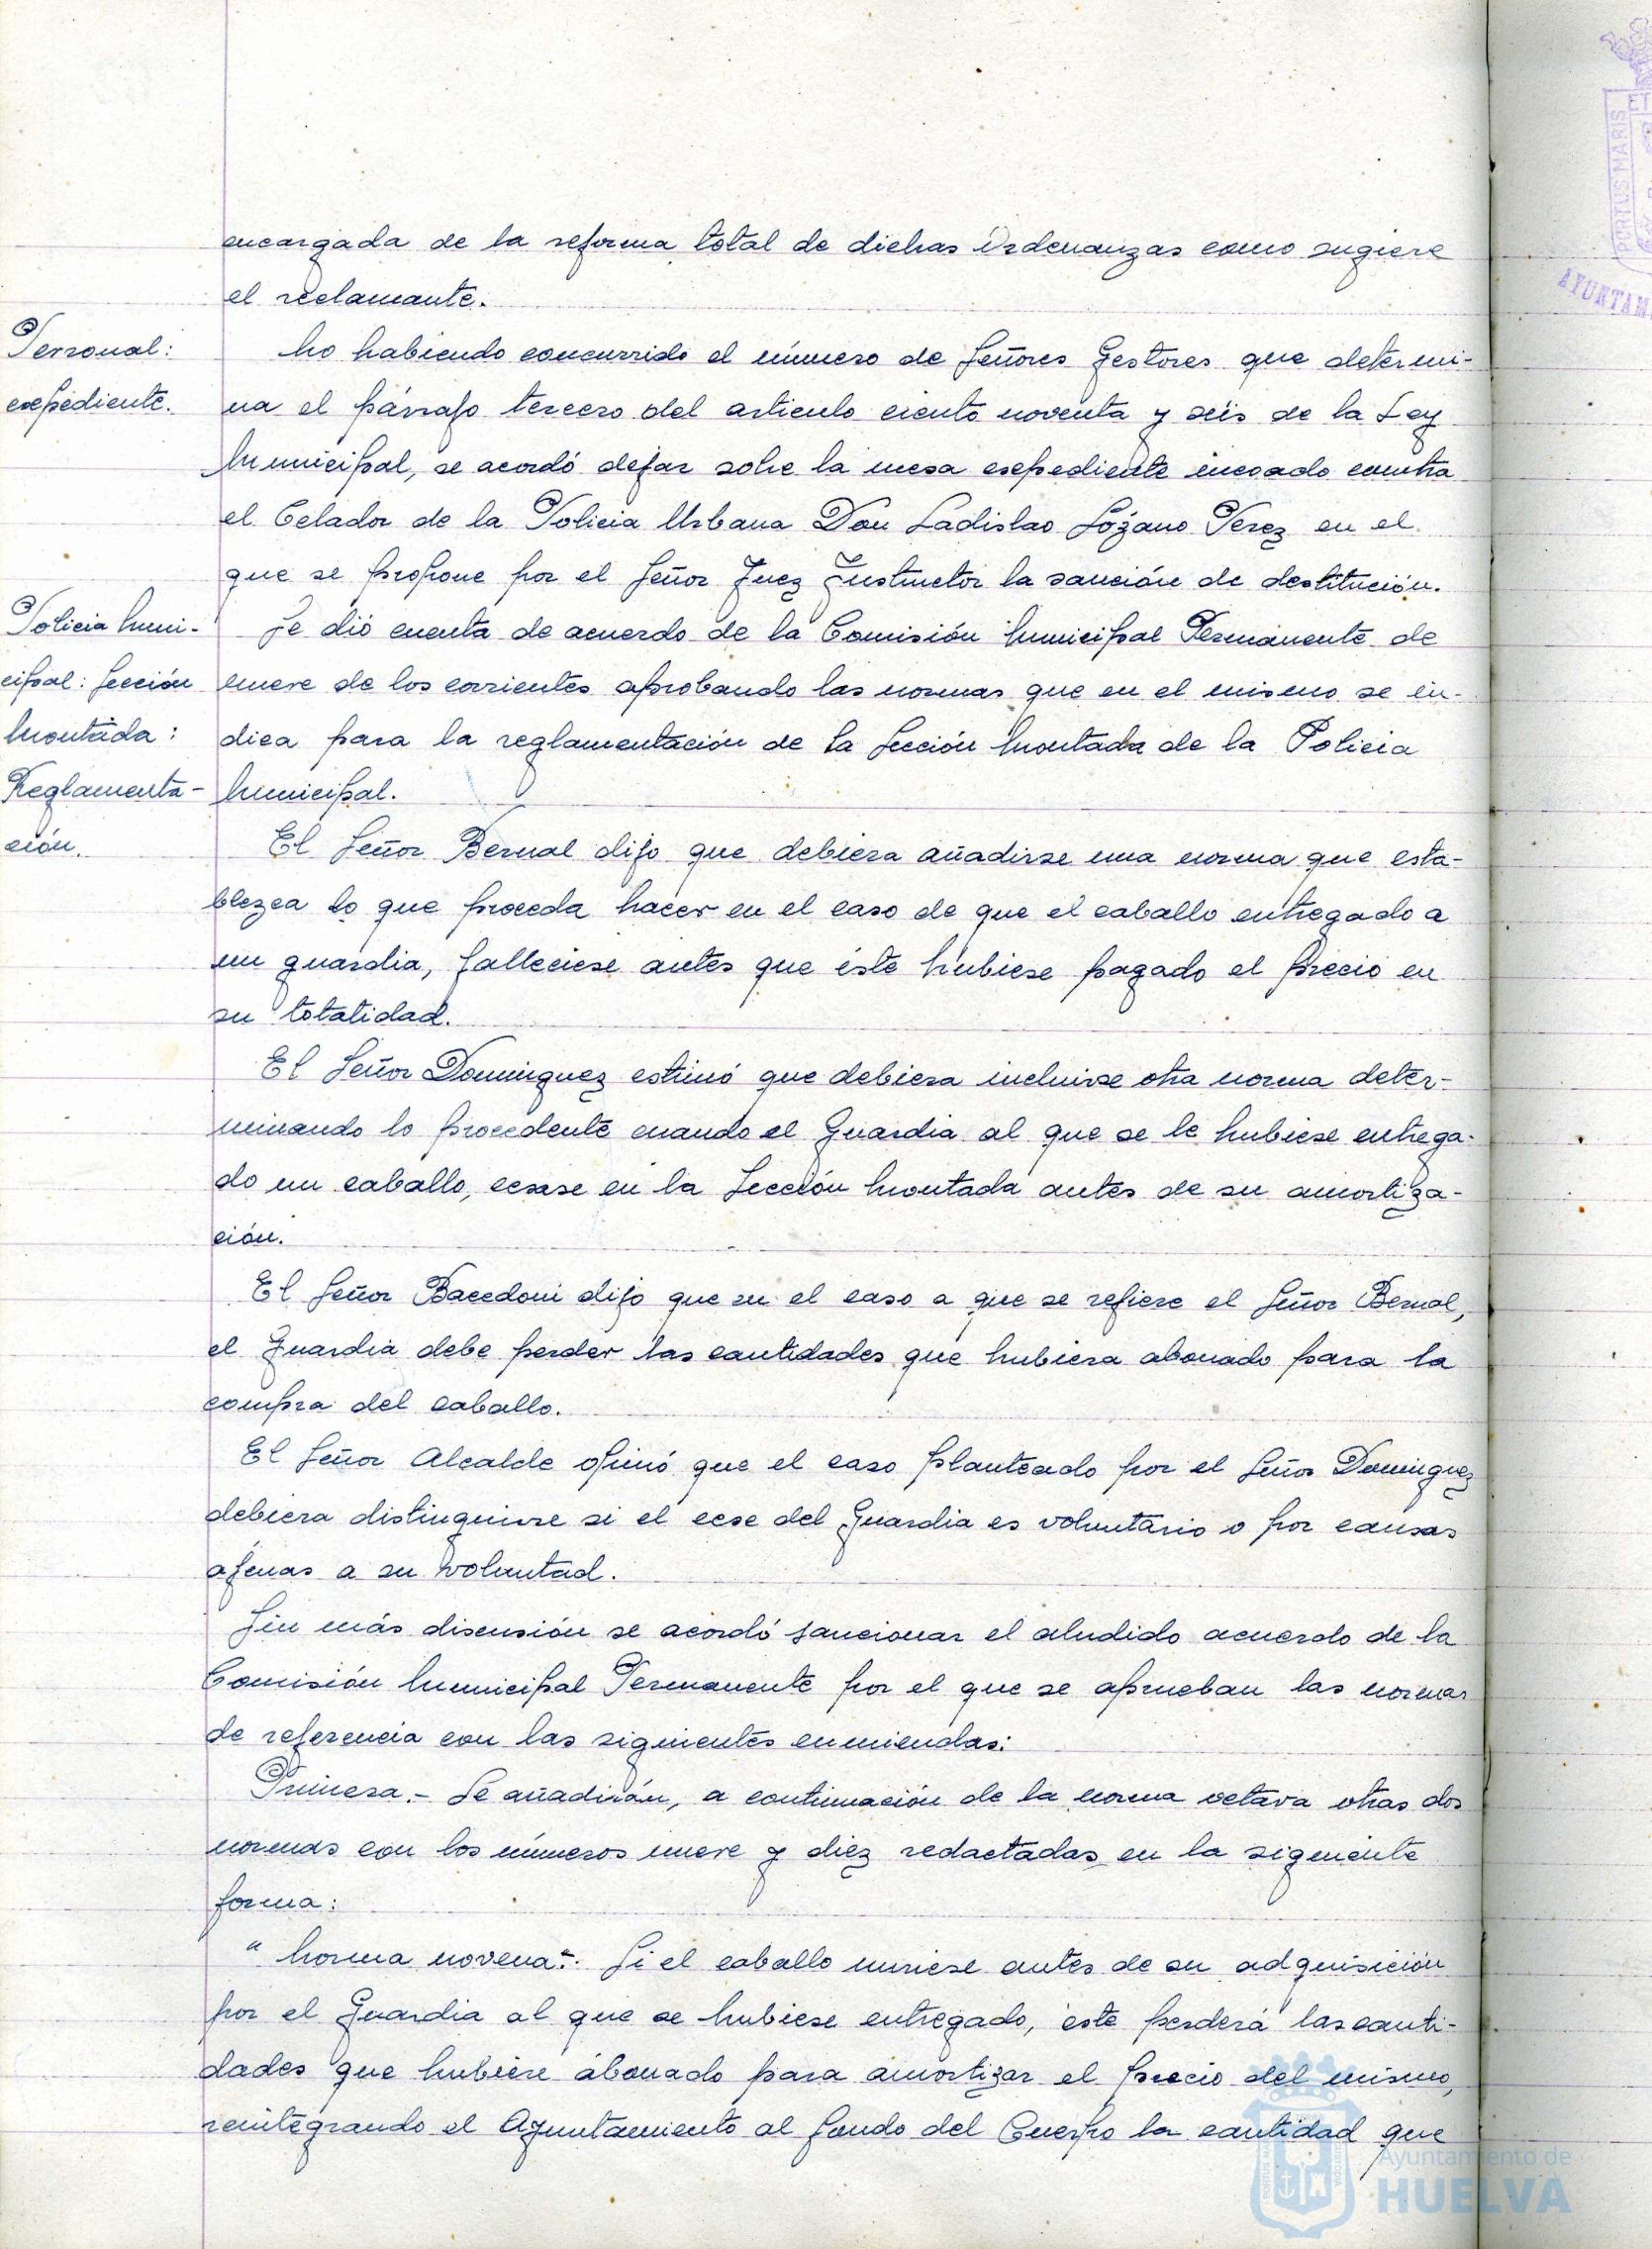 encargada de la reforma total de dichas Ordenanzas como sugiere
el reclamante.
Personal:
expediente.
No habiendo concurrido el número de Señores Gestores que determi-
na el párrafo tercero del articulo ciento noventa y séis de la Ley
Municipal, se acordó dejar sobre la mesa expediente incoado contra
el Celador de la Policia Urbana Don Ladislao Lozano Perez en el
que se propone por el Señor Juez Instructor la sanción de destitución.
Policia Muni-
cipal: Sección
Montada:
Reglamenta-
ción.
Se dió cuenta de acuerdo de la Comisión Municipal Permanente de
nueve de los corrientes aprobando las normas que en el mismo se in-
dica para la reglamentación de la Sección Montada de la Policia
Municipal.
El Señor Bernal dijo que debiera añadirse una norma que esta-
blezca lo que proceda hacer en el caso de que el caballo entregado a
un guardia, falleciese antes que éste hubiese pagado el precio en
su totalidad.
El Señor Dominguez estimó que debiera incluirse otra norma deter-
minando lo procedente cuando el Guardia al que se le hubiese entrega-
do un caballo, cesase en la Sección Montada antes de su amortiza-
ción.
El Señor Bacedoni dijo que en el caso a que se refiere el Señor Bernal,
el Guardia debe perder las cantidades que hubiera abonado para la
compra del caballo.
El Señor Alcalde opinó que el caso planteado por el Señor Dominguez
debiera distinguirse si el cese del Guardia es voluntario o por causas
ajenas a su voluntad.
Sin más discusión se acordó sancionar el aludido acuerdo de la
Comisión Municipal Permanente por el que se aprueban las normas
de referencia con las siguientes enmiendas:
Primera.- Se añadirán, a continuación de la norma octava otras dos
normas con los números nueve y diez redactadas en la siguiente
forma:
"Norma novena".- Si el caballo muriese antes de su adquisición
por el Guardia al que se hubiese entregado, éste perderá las canti-
dades que hubiere abonado para amortizar el precio del mismo,
reintegrando el Ayuntamiento al fondo del Cuerpo la cantidad que
PORTUS MARIS
AYUNTAM
Ayuntamiento de
HUELVA